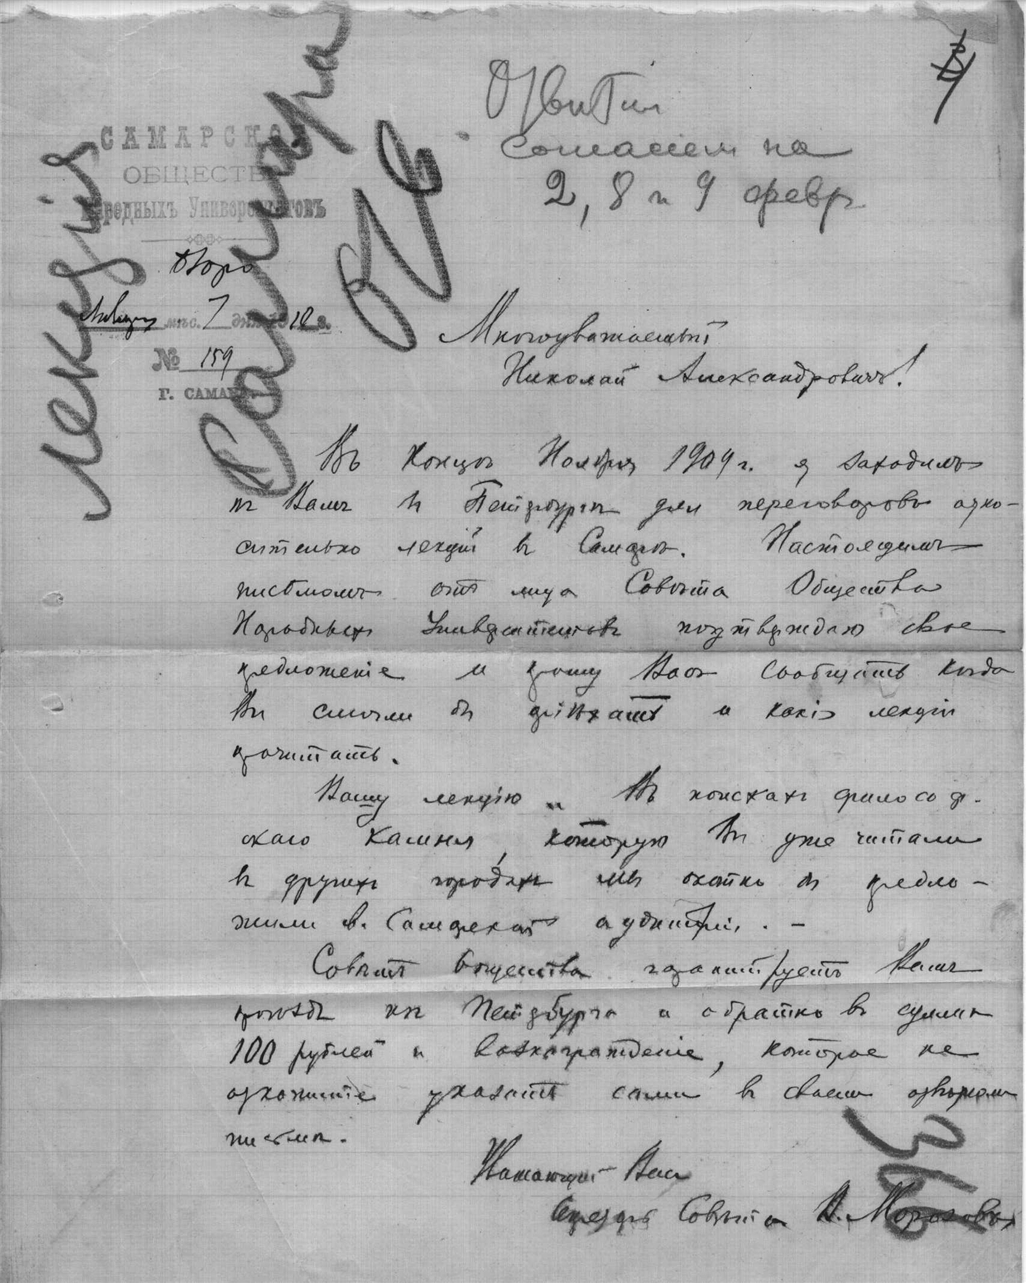 Лекція
Самара
Отвѣтил
согласіем на
2, 8 и 9 февр
САМАРСКОЕ
ОБЩЕСТВО
Народныхъ Университетовъ
Бюро
Января мѣс. 7 дня 1910 г.
№ 159
Г. САМАРА.
Многоуважаемый
Николай Александровичъ!
Въ концѣ Ноября 1909 г. я заходилъ
къ Вамъ в Петербургѣ для переговоровъ отно-
сительно лекцій в Самарѣ. Настоящимъ
письмомъ от лица Совѣта Общества
Народныхъ Университетовъ подтверждаю свое
предложеніе и прошу Васъ сообщить когда
Вы смогли бы пріѣхать и какія лекціи
прочитать.
Вашу лекцію „Въ поискахъ философ-
скаго камня, которую Вы уже читали
в другихъ городахъ мы охотно бы предло-
жили в. Самарской аудиторіи. -
Совѣтъ Общества гарантируетъ Вамъ
проѣздъ изъ Петербурга и обратно в суммѣ
100 рублей и вознагражденіе, которое не
откажите указать сами в своем отвѣтном
письмѣ.
Уважающій Васъ
Совѣта В. Морозовъ